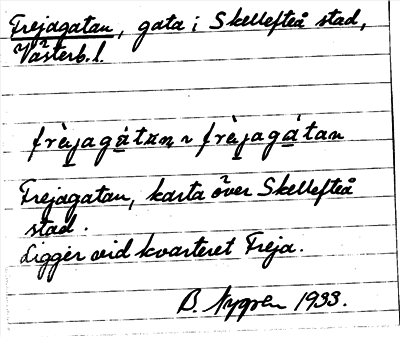 Frejagatan, gata i Skellefteå stad,
Västerb.l.
frèjagátan ~ frèjagátan
Frejagatan, karta över Skellefteå
stad.
Ligger vid kvarteret Freja.
B. Nygren 1933.